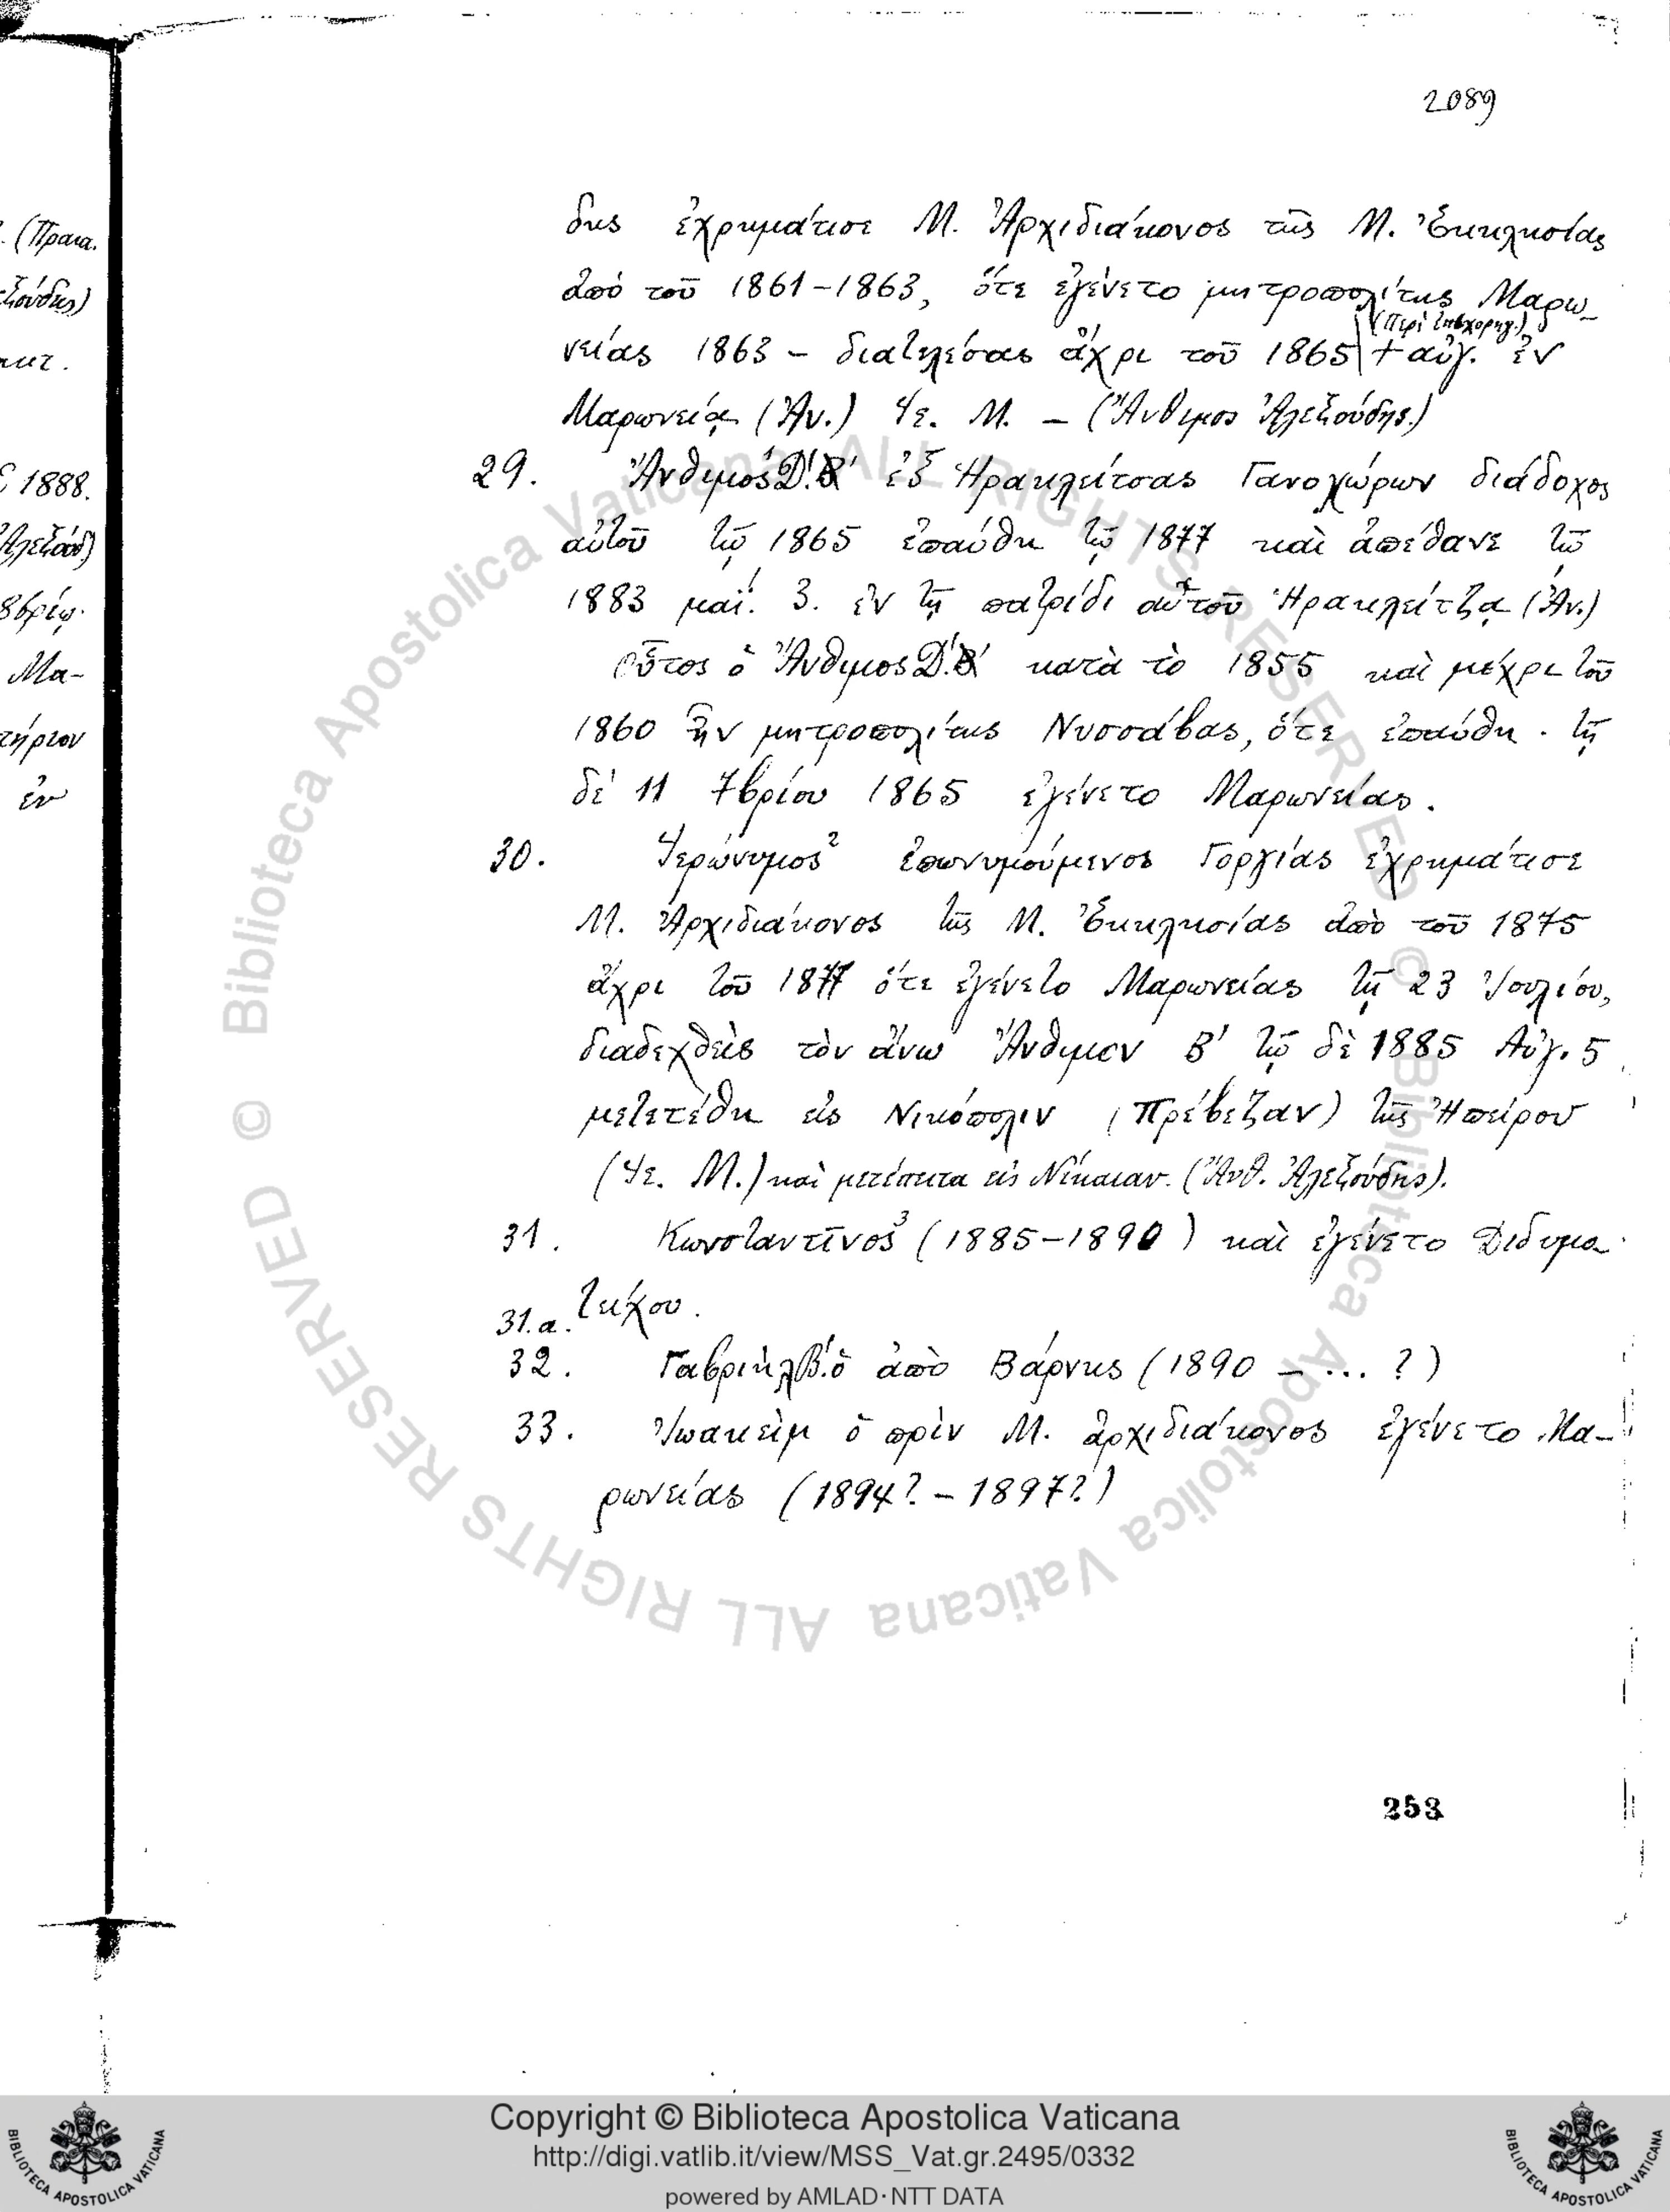 2089
. (Πραια.
ξούδης)
ακτ.
δης ἐχρημάτισε Μ. Ἀρχιδιάκονος τῆς Μ. Ἐκκλησίας
ἀπὸ τοῦ 1861-1863, ὅτε ἐγένετο μητροπολίτης Μαρω_
(Περὶ )
νείας 1863 - διατελέσας ἄχρι τοῦ 1865 + αὐγ. ἐν
Μαρωνείᾳ (Ἀν.) Ἱε. Μ. - (Ἄνθιμος Ἀλεξούδης.)
1888.
29. Ἄνθιμος Δ'. ἐξ Ἡρακλείτσας Γανοχώρων διάδοχος
αὐτοῦ τῷ 1865 ἐπαύθη τῷ 1877 καὶ ἀπέθανε τῷ
1883 μαΐ. 3. ἐν τῇ πατρίδι αὐτοῦ Ἡρακλείτζᾳ (Ἀν.)
Οὗτος ὁ Ἄνθιμος Δ'. κατὰ τὸ 1855 καὶ μέχρι τοῦ
Μα-
1860 ἦν μητροπολίτης Νυσσάβας, ὅτε ἐπαύθη · τῇ
τήριον
δὲ 11 7βρίου 1865 ἐγένετο Μαρωνείας.
ἐν
30. Ἱερώνυμος² ἐπωνυμούμενος Γοργίας ἐχρημάτισε
Μ. Ἀρχιδιάκονος τῆς Μ. Ἐκκλησίας ἀπὸ τοῦ 1875
ἄχρι τοῦ 1877 ὅτε ἐγένετο Μαρωνείας τῇ 23 Ἰουλίου,
διαδεχθεὶς τὸν ἄνω Ἄνθιμον Β' τῷ δὲ 1885 Αὐγ. 5
μετετέθη εἰς Νικόπολιν (Πρέβεζαν) τῆς Ἠπείρου
(Ἱε. Μ.) καὶ μετέπειτα εἰς Νίκαιαν. (Ἄνθ. Ἀλεξούδης).
31. Κωνσταντῖνος³ (1885-1890) καὶ ἐγένετο Διδυμο
τείχου.
31.α.
32. Γαβριὴλ Β'. ὁ ἀπὸ Βάρνης (1890 - ... ?)
33. Ἰωακεὶμ ὁ πρὶν Μ. ἀρχιδιάκονος ἐγένετο Μα-
ρωνείας (1894? - 1897?)
253
© Biblioteca Apostolica Vaticana ALL RIGHTS RESERVED © Biblioteca Apostolica Vaticana ALL RIGHTS RESERVED
Copyright © Biblioteca Apostolica Vaticana
http://digi.vatlib.it/view/MSS_Vat.gr.2495/0332
powered by AMLAD·NTT DATA
BIBLIOTECA APOSTOLICA VATICANA
BIBLIOTECA APOSTOLICA VATICANA